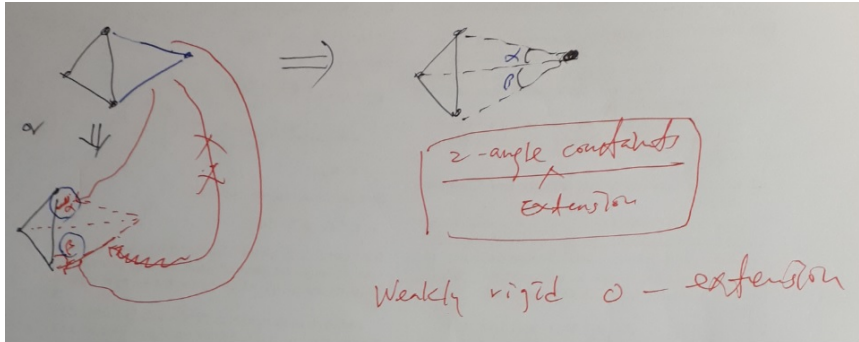 α
β
2-angle constaints
Extension
Weakly rigid 0 - extension